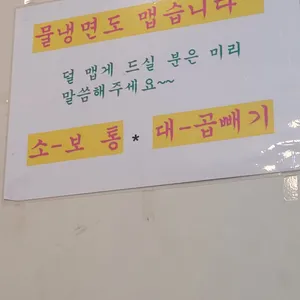 물냉면도 맵습니다
덜 맵게 드실 분은 미리
말씀해주세요~~
소-보통 * 대-곱빼기